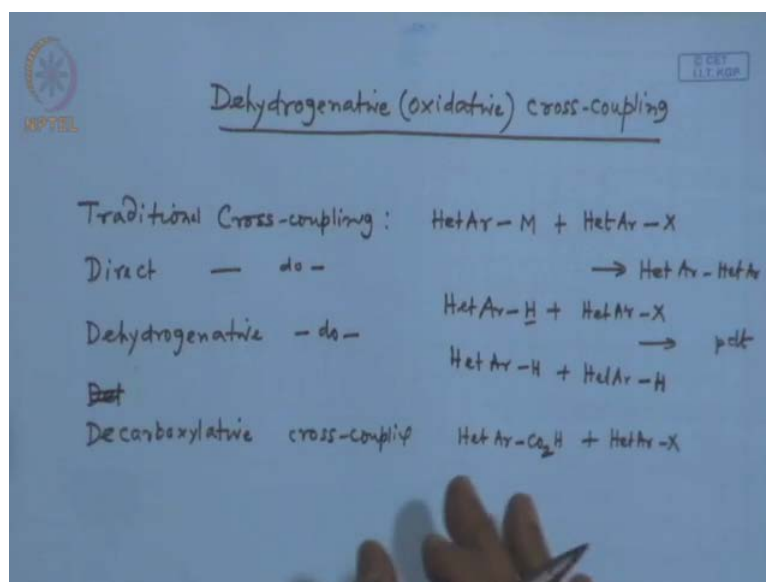 NPTEL
© CET
I.I.T. KGP
Dehydrogenative (oxidative) cross-coupling
Traditional Cross-coupling : HetAr – M + HetAr – X
→ HetAr – HetAr
Direct — do –
HetAr – H + HetAr – X
→ pdt
Dehydrogenative – do –
HetAr – H + HetAr – H
Decarboxylative cross-couplig HetAr – CO2H + HetAr – X